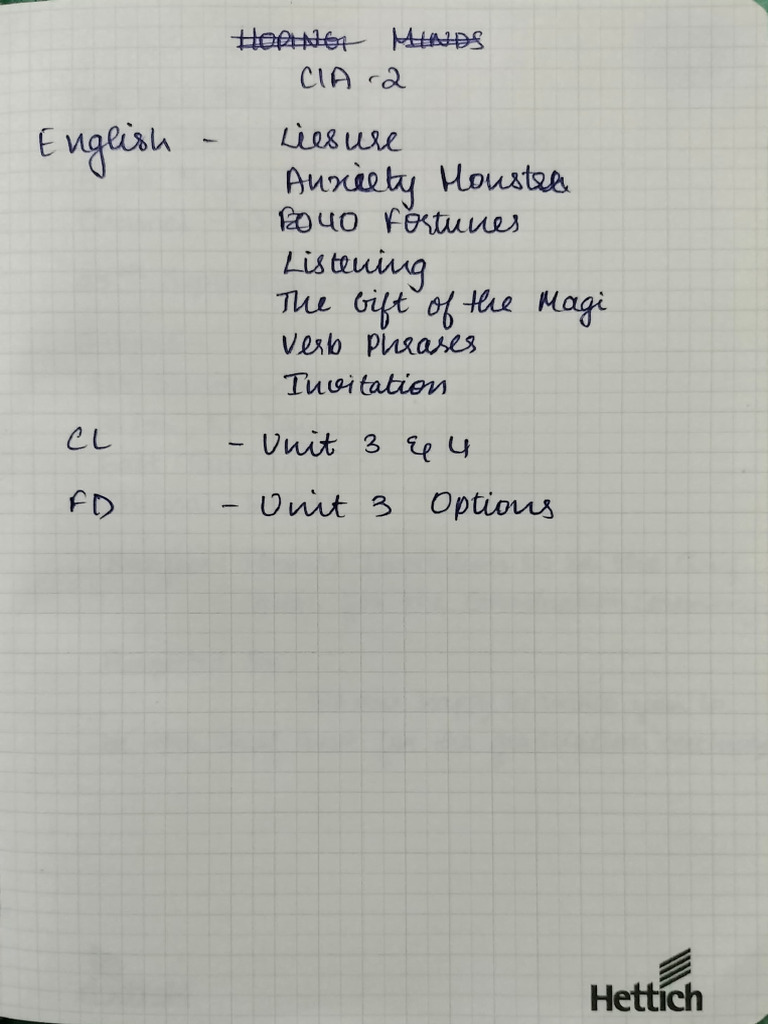 HOPING MINDS
CIA - 2
English - Liesure
Anxiety Monster
Fortunes
Listening
The Gift of the Magi
Verb Phrases
Invitation
CL - Unit 3 & 4
FD - Unit 3 Options
Hettich